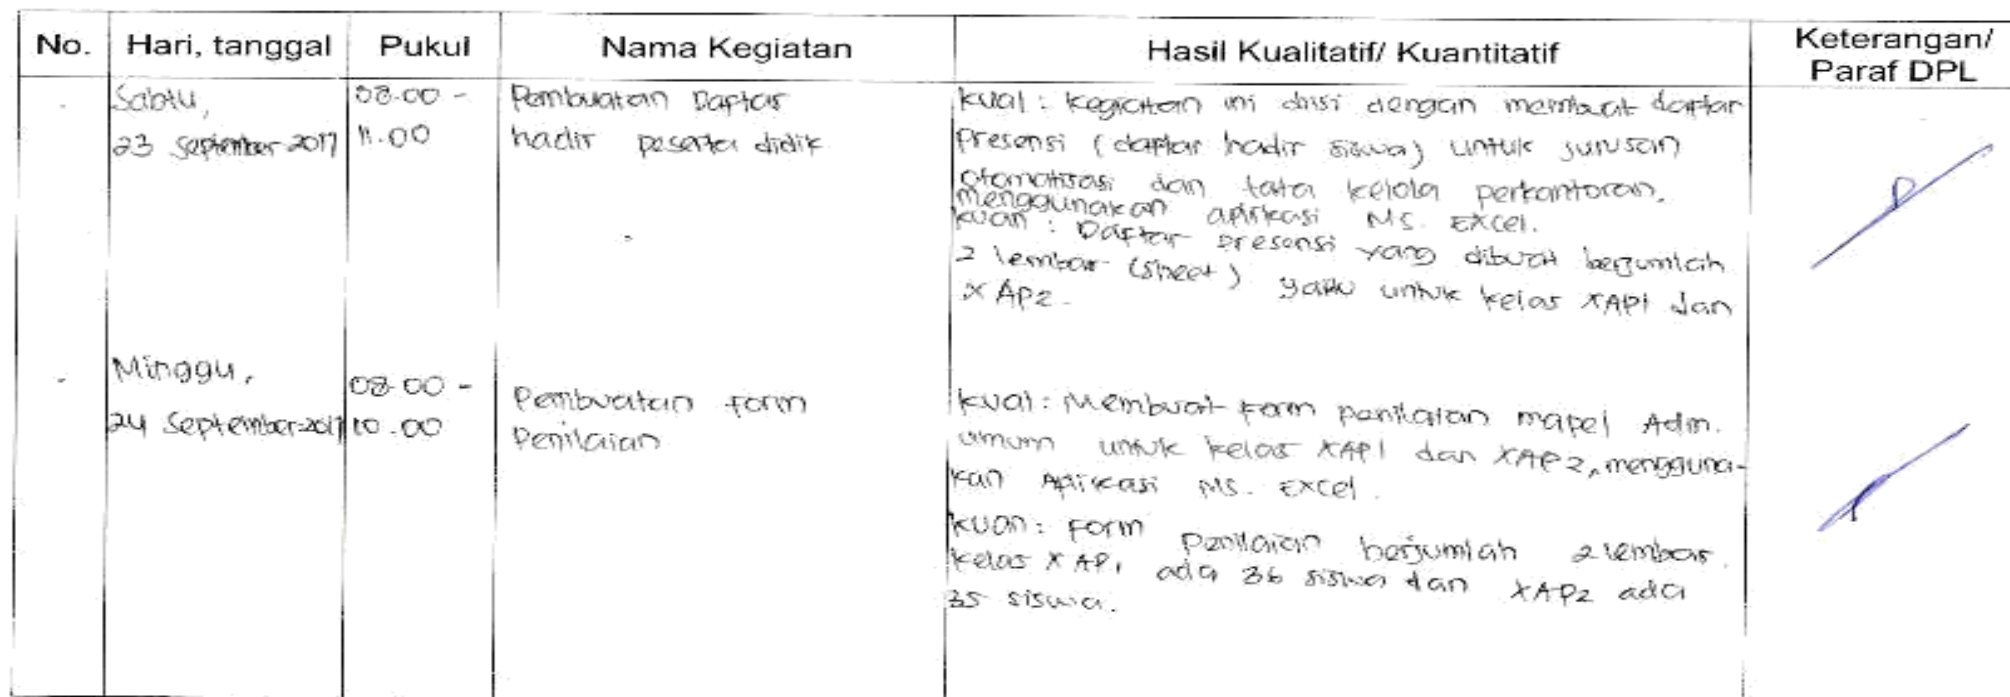 No. Hari, tanggal Pukul Nama Kegiatan Hasil Kualitatif/ Kuantitatif Keterangan/
Paraf DPL
Sabtu,
23 September 2017
08.00 -
11.00
Pembuatan Daftar
hadir peserta didik
kual : kegiatan ini diisi dengan membuat daftar
presensi (daftar hadir siswa) untuk jurusan
otomatisasi dan tata kelola perkantoran.
menggunakan aplikasi MS. Excel.
kuan : Daftar presensi yang dibuat berjumlah
2 lembar (sheet) yaitu untuk kelas XAP1 dan
X AP2.
Minggu,
24 September 2017
08.00 -
10.00
Pembuatan form
Penilaian
kual : Membuat form penilaian mapel Adm.
umum untuk kelas XAP1 dan XAP2, mengguna-
kan Aplikasi MS. Excel.
kuan : Form Penilaian berjumlah 2 lembar.
kelas X AP1 ada 36 siswa dan XAP2 ada
35 siswa.